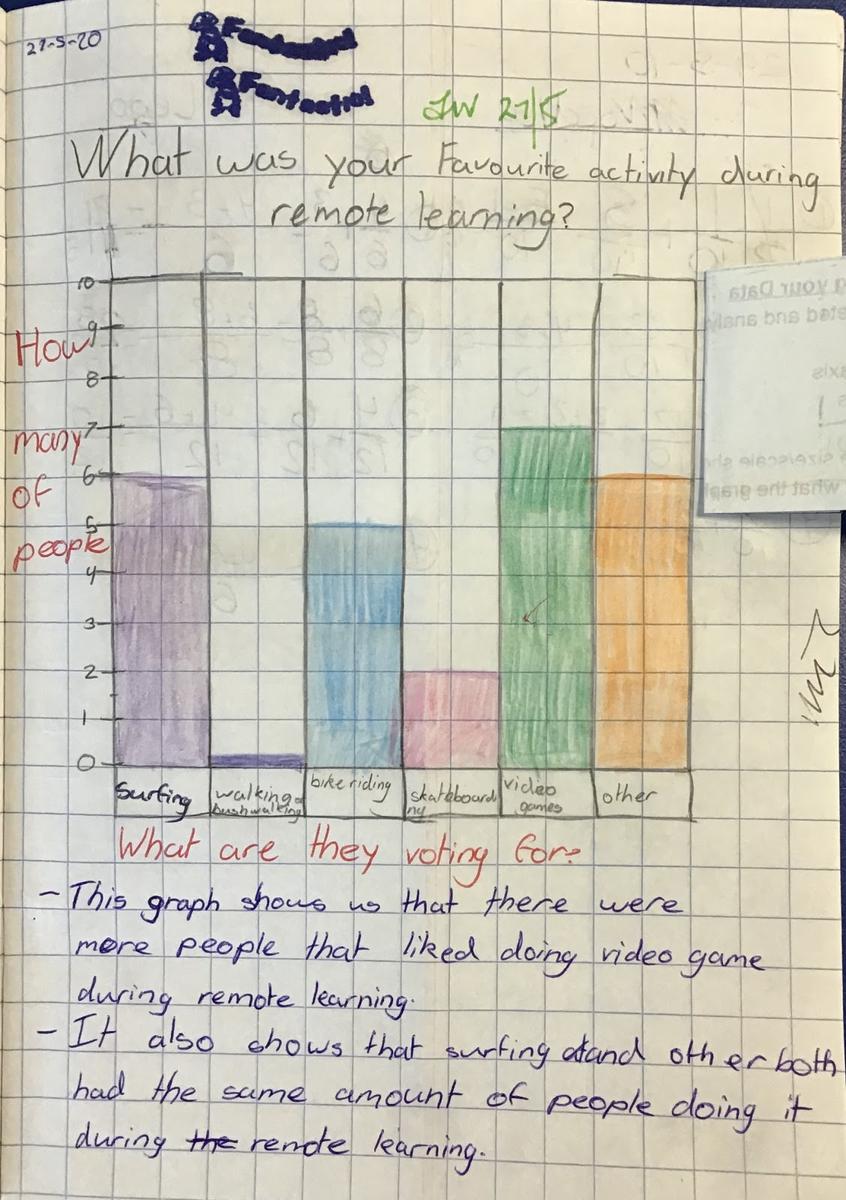 27-5-20
Fantastic!
JW 27/5
What was your Favourite activity during
remote learning?
10
9
8
7
6
5
4
3
2
1
0
How
many
of
people
surfing
walking or
bushwalking
bike riding
skateboardi
ng
video
games
other
What are they voting for?
- This graph shows us that there were
more people that liked doing video game
during remote learning.
- It also shows that surfing and other both
had the same amount of people doing it
during the remote learning.